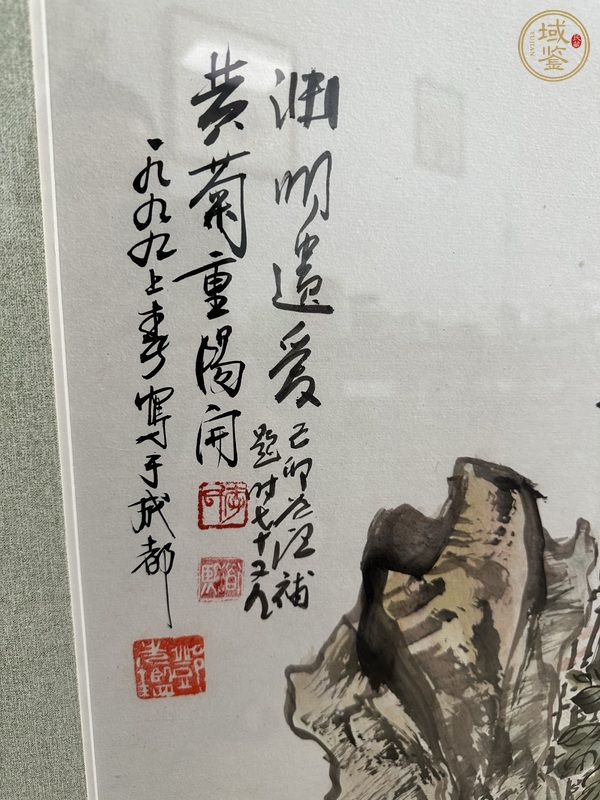 渊明遗爱
黄菊重阳开
一九九九上春写于成都
己卯
补
题时七十又
域鉴
YUJIAN